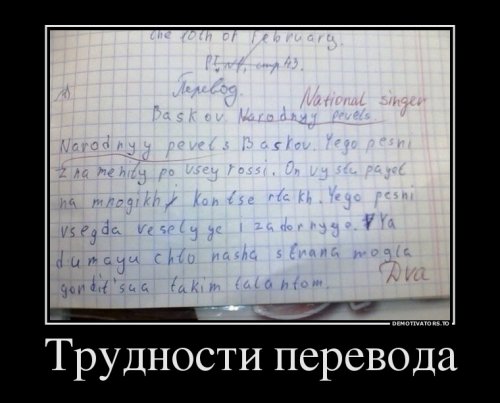 the 10th of February.
стр 43.
Перевод.
National singer
Baskov. Narodnyy pevets.
Narodnyy pevets Baskov. Yego pesni
znamenity po vsey rossi. On vystupayet
na mnogikh kontsertakh. Yego pesni
vsegda veselyye i zadornyye. Ya
dumayu chto nasha strana mogla
gordit'sya takim talantom.
Dva
DEMOTIVATORS.TO
Трудности перевода